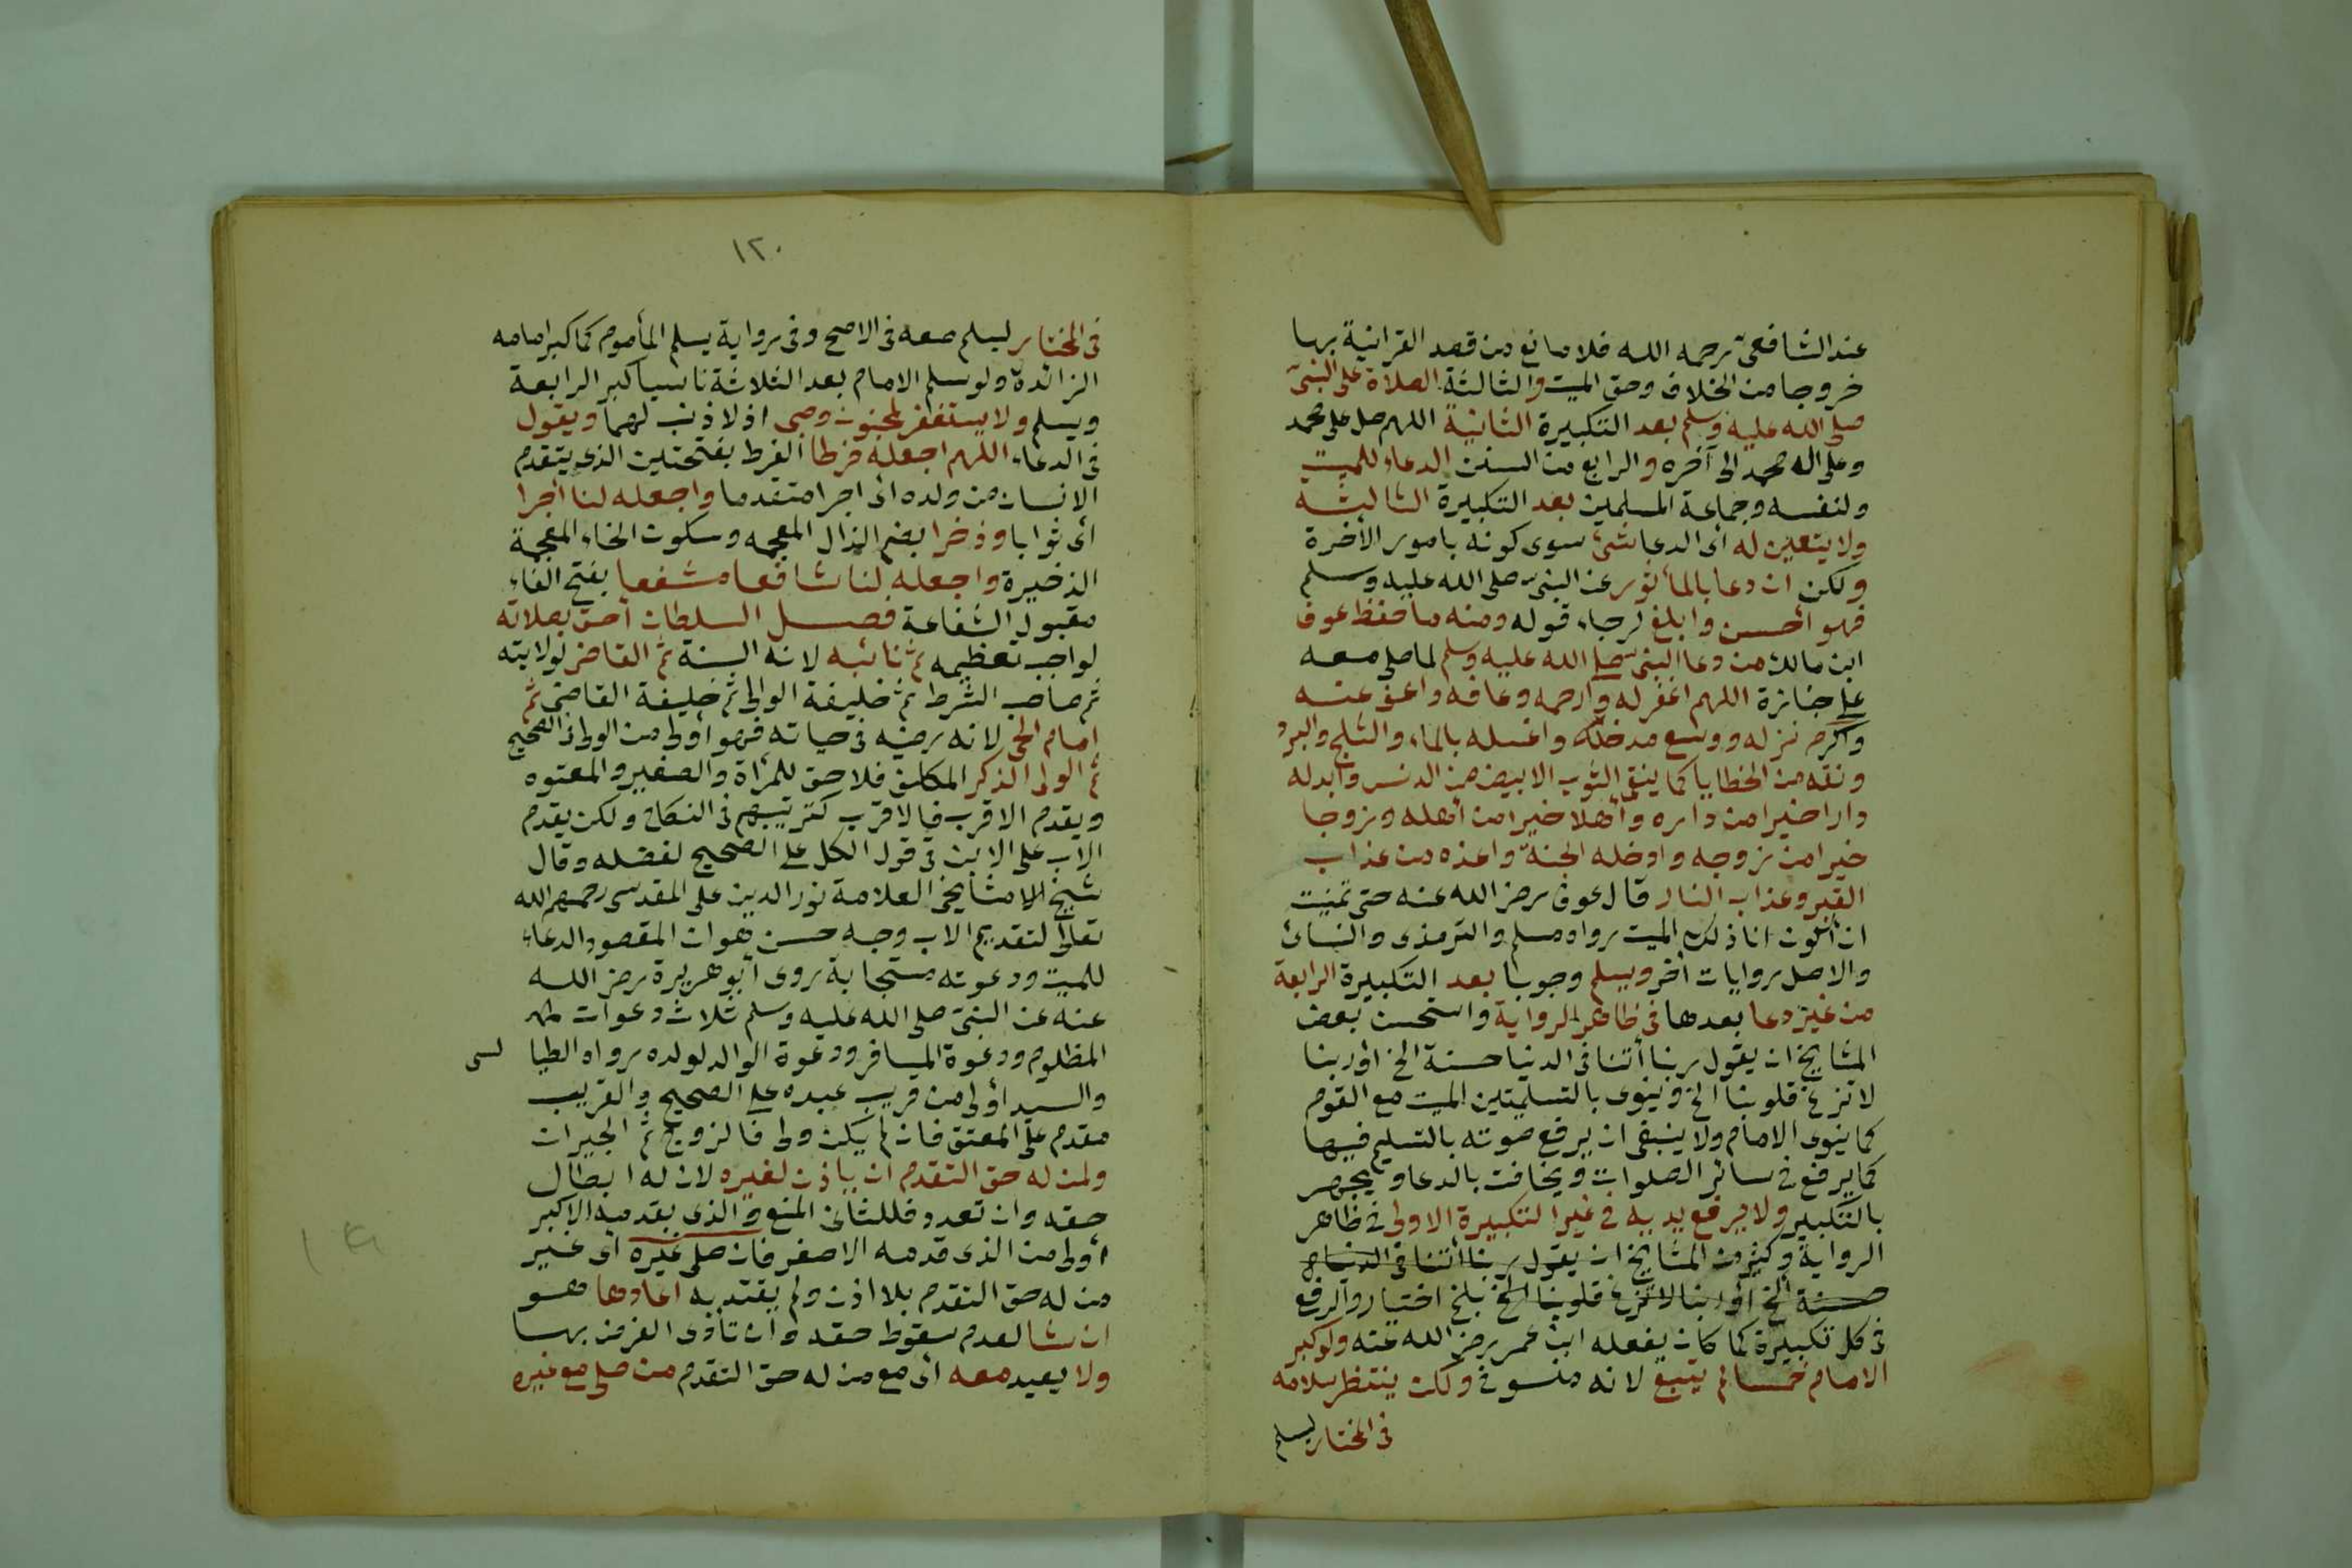 عند الشافعى رحمه الله فلا مانع من قصد القرانية بها
خروجا من الخلاف وحق الميت والثالثة الصلاة على النبى
صلى الله عليه وسلم بعد التكبيرة الثانية اللهم صل على محمد
وعلى اله محمد الى آخره والرابع من السنن الدعاء للميت
ولنفسه وجماعة المسلمين بعد التكبيرة الثالثة
ولا يتعين له أى الدعا شئ سوى كونه بامور الآخرة
ولكن ان دعا بالمأثور عن النبى صلى الله عليه وسلم
فهو أحسن وابلغ لرجاء قوله ومنه ما حفظ عوف
ابن مالك من دعا النبى صلى الله عليه وسلم لما صلى معه
على جنازة اللهم اغفر له وارحمه وعافه واعف عنه
واكرم نزله ووسع مدخله واغسله بالماء والثلج والبرد
ونقه من الخطايا كما ينقى الثوب الابيض من الدنس وابدله
دارا خيرا من داره وأهلا خيرا من أهله وزوجا
خيرا من زوجه وادخله الجنة واعذه من عذاب
القبر وعذاب النار قال عوف رضى الله عنه حتى تمنيت
ان أكون انا ذلك الميت رواه مسلم والترمذى والنسائ
والاصل روايات أخر ويسلم وجوبا بعد التكبيرة الرابعة
من غير دعا بعدها فى ظاهر الرواية واستحسن بعض
المشايخ ان يقول ربنا أتنا فى الدنيا حسنة الخ أو ربنا
لا تزغ قلوبنا الخ وينوى بالتسليمتين الميت مع القوم
كما ينوى الامام ولا ينبغى ان يرفع صوته بالتسليم فيها
كما يرفع فى سائر الصلوات ويخافت بالدعا ويجهر
بالتكبير ولا يرفع يديه فى غير التكبيرة الاولى فى ظاهر
الرواية وكثير من المشايخ ان يقول ربنا أتنا فى الدنيا
حسنة الخ أو ربنا لا تزغ قلوبنا الخ بلخ اختاروا الرفع
فى كل تكبيرة كما كان يفعله ابن عمر رضى الله عنه ولو كبر
الامام خمسا لم يتبع لانه منسوخ ولكن ينتظر سلامه
فى المختار ليسلم
١٢٠
فى المختار ليسلم معه فى الاصح وفى رواية يسلم المأموم كما كبر امامه
الزائدة ولو سلم الامام بعد الثلاثة ناسيا كبر الرابعة
ويسلم ولا يستغفر لمجنون وصبى اذ لا ذنب لهما ويقول
فى الدعاء اللهم اجعله فرطا الفرط بفتحتين الذى يتقدم
الانسان من ولده اى اجرا متقدما واجعله لنا اجرا
أى ثوابا وذخرا بضم الذال المعجمه وسكون الخاء المعجمة
الذخيرة واجعله لنا شافعا مشفعا بفتح الفاء
مقبول الشفاعة فصل السلطان أحق بصلاته
لواجب تعظيمه ثم نائبه لانه السنة ثم القاضى لولايته
ثم صاحب الشرط ثم خليفة الوالى ثم خليفة القاضى ثم
امام الحى لانه رضيه فى حياته فهو أولى من الولى فى الصحيح
ثم الولى الذكر المكلف فلا حق للمرأة والصغير والمعتوه
ويقدم الاقرب فالاقرب كترتيبهم فى النكاح ولكن يقدم
الاب على الابن فى قول الكل على الصحيح لفضله وقال
شيخ مشايخى العلامة نور الدين على المقدسى رحمهم الله
تعالى لتقديم الاب وجه حسن هوان المقصود الدعاء
للميت ودعوته مستجابة روى ابو هريرة رضى الله
عنه عن النبى صلى الله عليه وسلم ثلاث دعوات
المظلوم ودعوة المسافر ودعوة الوالد لولده رواه الطيا لسى
والسيد أولى من قريب عبده على الصحيح والقريب
مقدم على المعتق فان لم يكن ولى فالزوج ثم الجيران
ولمن له حق التقدم ان ياذن لغيره لان له ابطال
حقه وان تعدد فللثانى المنع والذى يقدمه الاكبر
أولى من الذى قدمه الاصغر فان صلى غيره اى غير
من له حق التقدم بلا اذن ولم يقتد به اعادها هو
ان شا لعدم سقوط حقه وان تأدى الفرض بها
ولا يعيد معه أى مع من له حق التقدم من صلى مع غيره